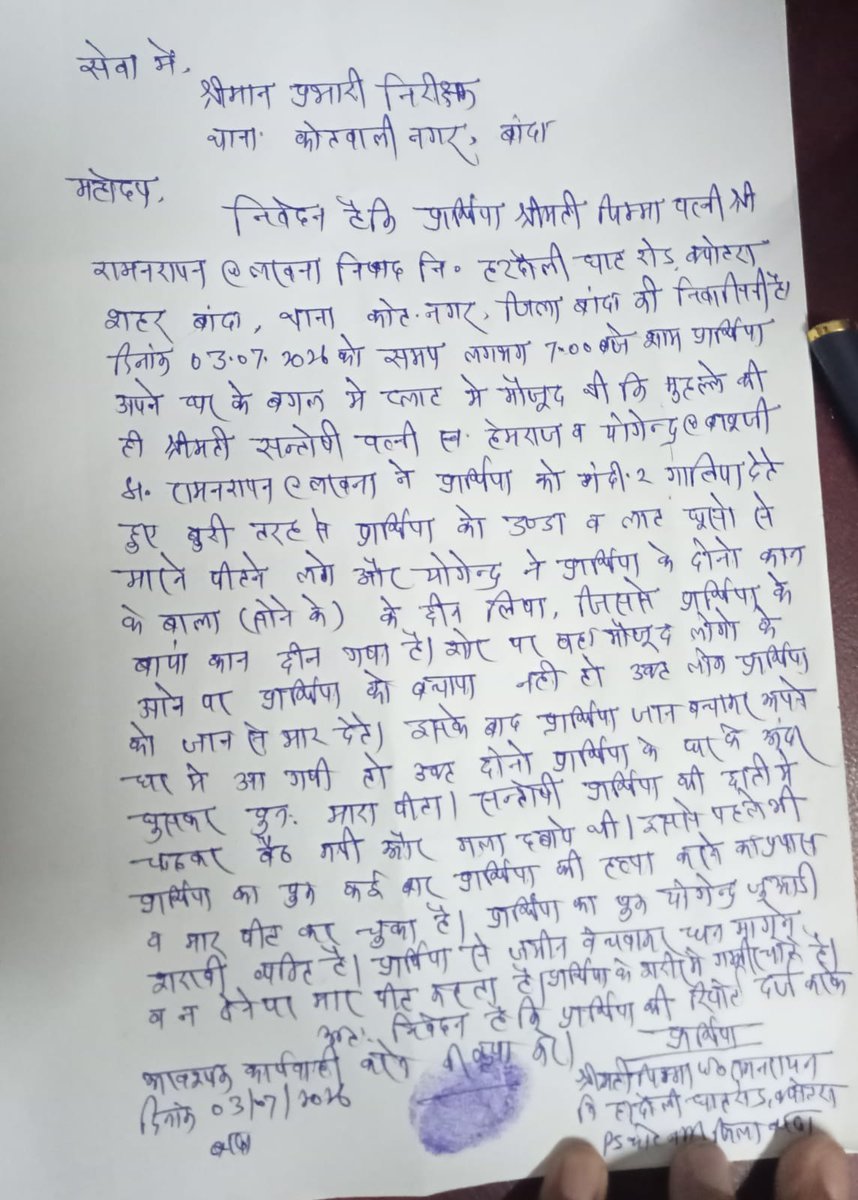 सेवा में,
श्रीमान प्रभारी निरीक्षक
थाना कोतवाली नगर, बांदा
महोदय,
निवेदन है कि प्रार्थिया श्रीमती पत्नी श्री
रामनरायन @ लाखना निषाद नि० हरदौली घाट रोड, क्योटरा
शहर बांदा, थाना कोत. नगर, जिला बांदा की निवासिनी है।
दिनांक 03.07.2026 को समय लगभग 7.00 बजे शाम प्रार्थिया
अपने घर के बगल मे प्लाट मे मौजूद थी कि मुहल्ले की
ही श्रीमती सन्तोषी पत्नी स्व. हेमराज व योगेन्द्र @
रामनरायन @ लाखना ने प्रार्थिया को गंदी-2 गालिया देते
हुए बुरी तरह से प्रार्थिया को डण्डा व लात घूसो से
मारने पीटने लगे और योगेन्द्र ने प्रार्थिया के दोनो कान
के बाला (सोने के) के छीन लिया, जिससे प्रार्थिया के
बायां कान छीन गया है। शोर पर वहा मौजूद लोगो के
आने पर प्रार्थिया को बचाया नही तो उक्त लोग प्रार्थिया
को जान से मार देते। इसके बाद प्रार्थिया जान बचाकर अपने
घर मे आ गयी तो उक्त दोनो प्रार्थिया के घर के अंदर
घुसकर पुन: मारा पीटा। सन्तोषी प्रार्थिया की छाती मे
चढकर बैठ गयी और गला दबाये थी। इससे पहले भी
प्रार्थिया का पुत्र कई बार प्रार्थिया की हत्या करने का प्रयास
व मार पीट कर चुका है। प्रार्थिया का पुत्र योगेन्द्र जुआडी
शराबी व्यक्ति है। प्रार्थिया से जमीन बेचवाकर धन मागने
व न देने पर मार पीट करता है। प्रार्थिया के शरीर मे गम्भीर चोटे है।
अत: निवेदन है कि प्रार्थिया की रिपोर्ट दर्ज करके
आवश्यक कार्यवाही करने की कृपा करे।
दिनांक 03/07/2026
प्रार्थिया
श्रीमती w/o रामनरायन
नि हरदौली घाट रोड, क्योटरा
PS कोत नगर जिला बांदा